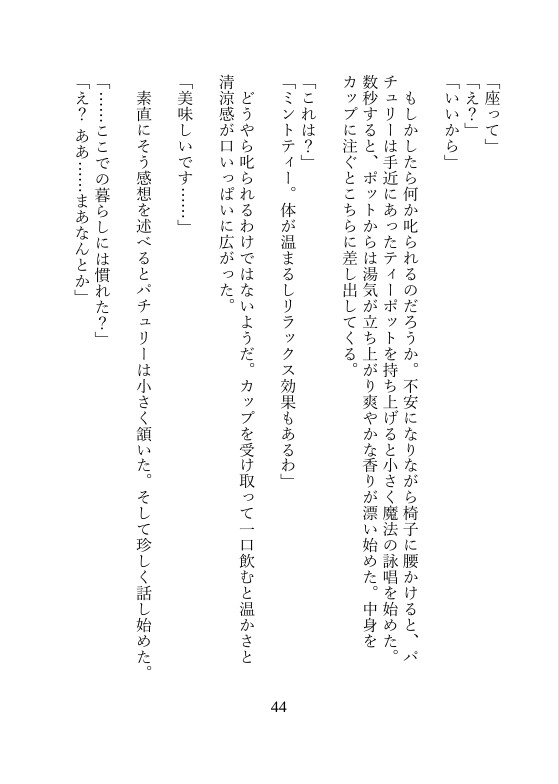 「座って」
「え？」
「いいから」
　もしかしたら何か叱られるのだろうか。不安になりながら椅子に腰かけると、パ
チュリーは手近にあったティーポットを持ち上げると小さく魔法の詠唱を始めた。
数秒すると、ポットからは湯気が立ち上がり爽やかな香りが漂い始めた。中身を
カップに注ぐとこちらに差し出してくる。
「これは？」
「ミントティー。体が温まるしリラックス効果もあるわ」
　どうやら叱られるわけではないようだ。カップを受け取って一口飲むと温かさと
清涼感が口いっぱいに広がった。
「美味しいです……」
　素直にそう感想を述べるとパチュリーは小さく頷いた。そして珍しく話し始めた。
「……ここでの暮らしには慣れた？」
「え？ ああ……まあなんとか」
44